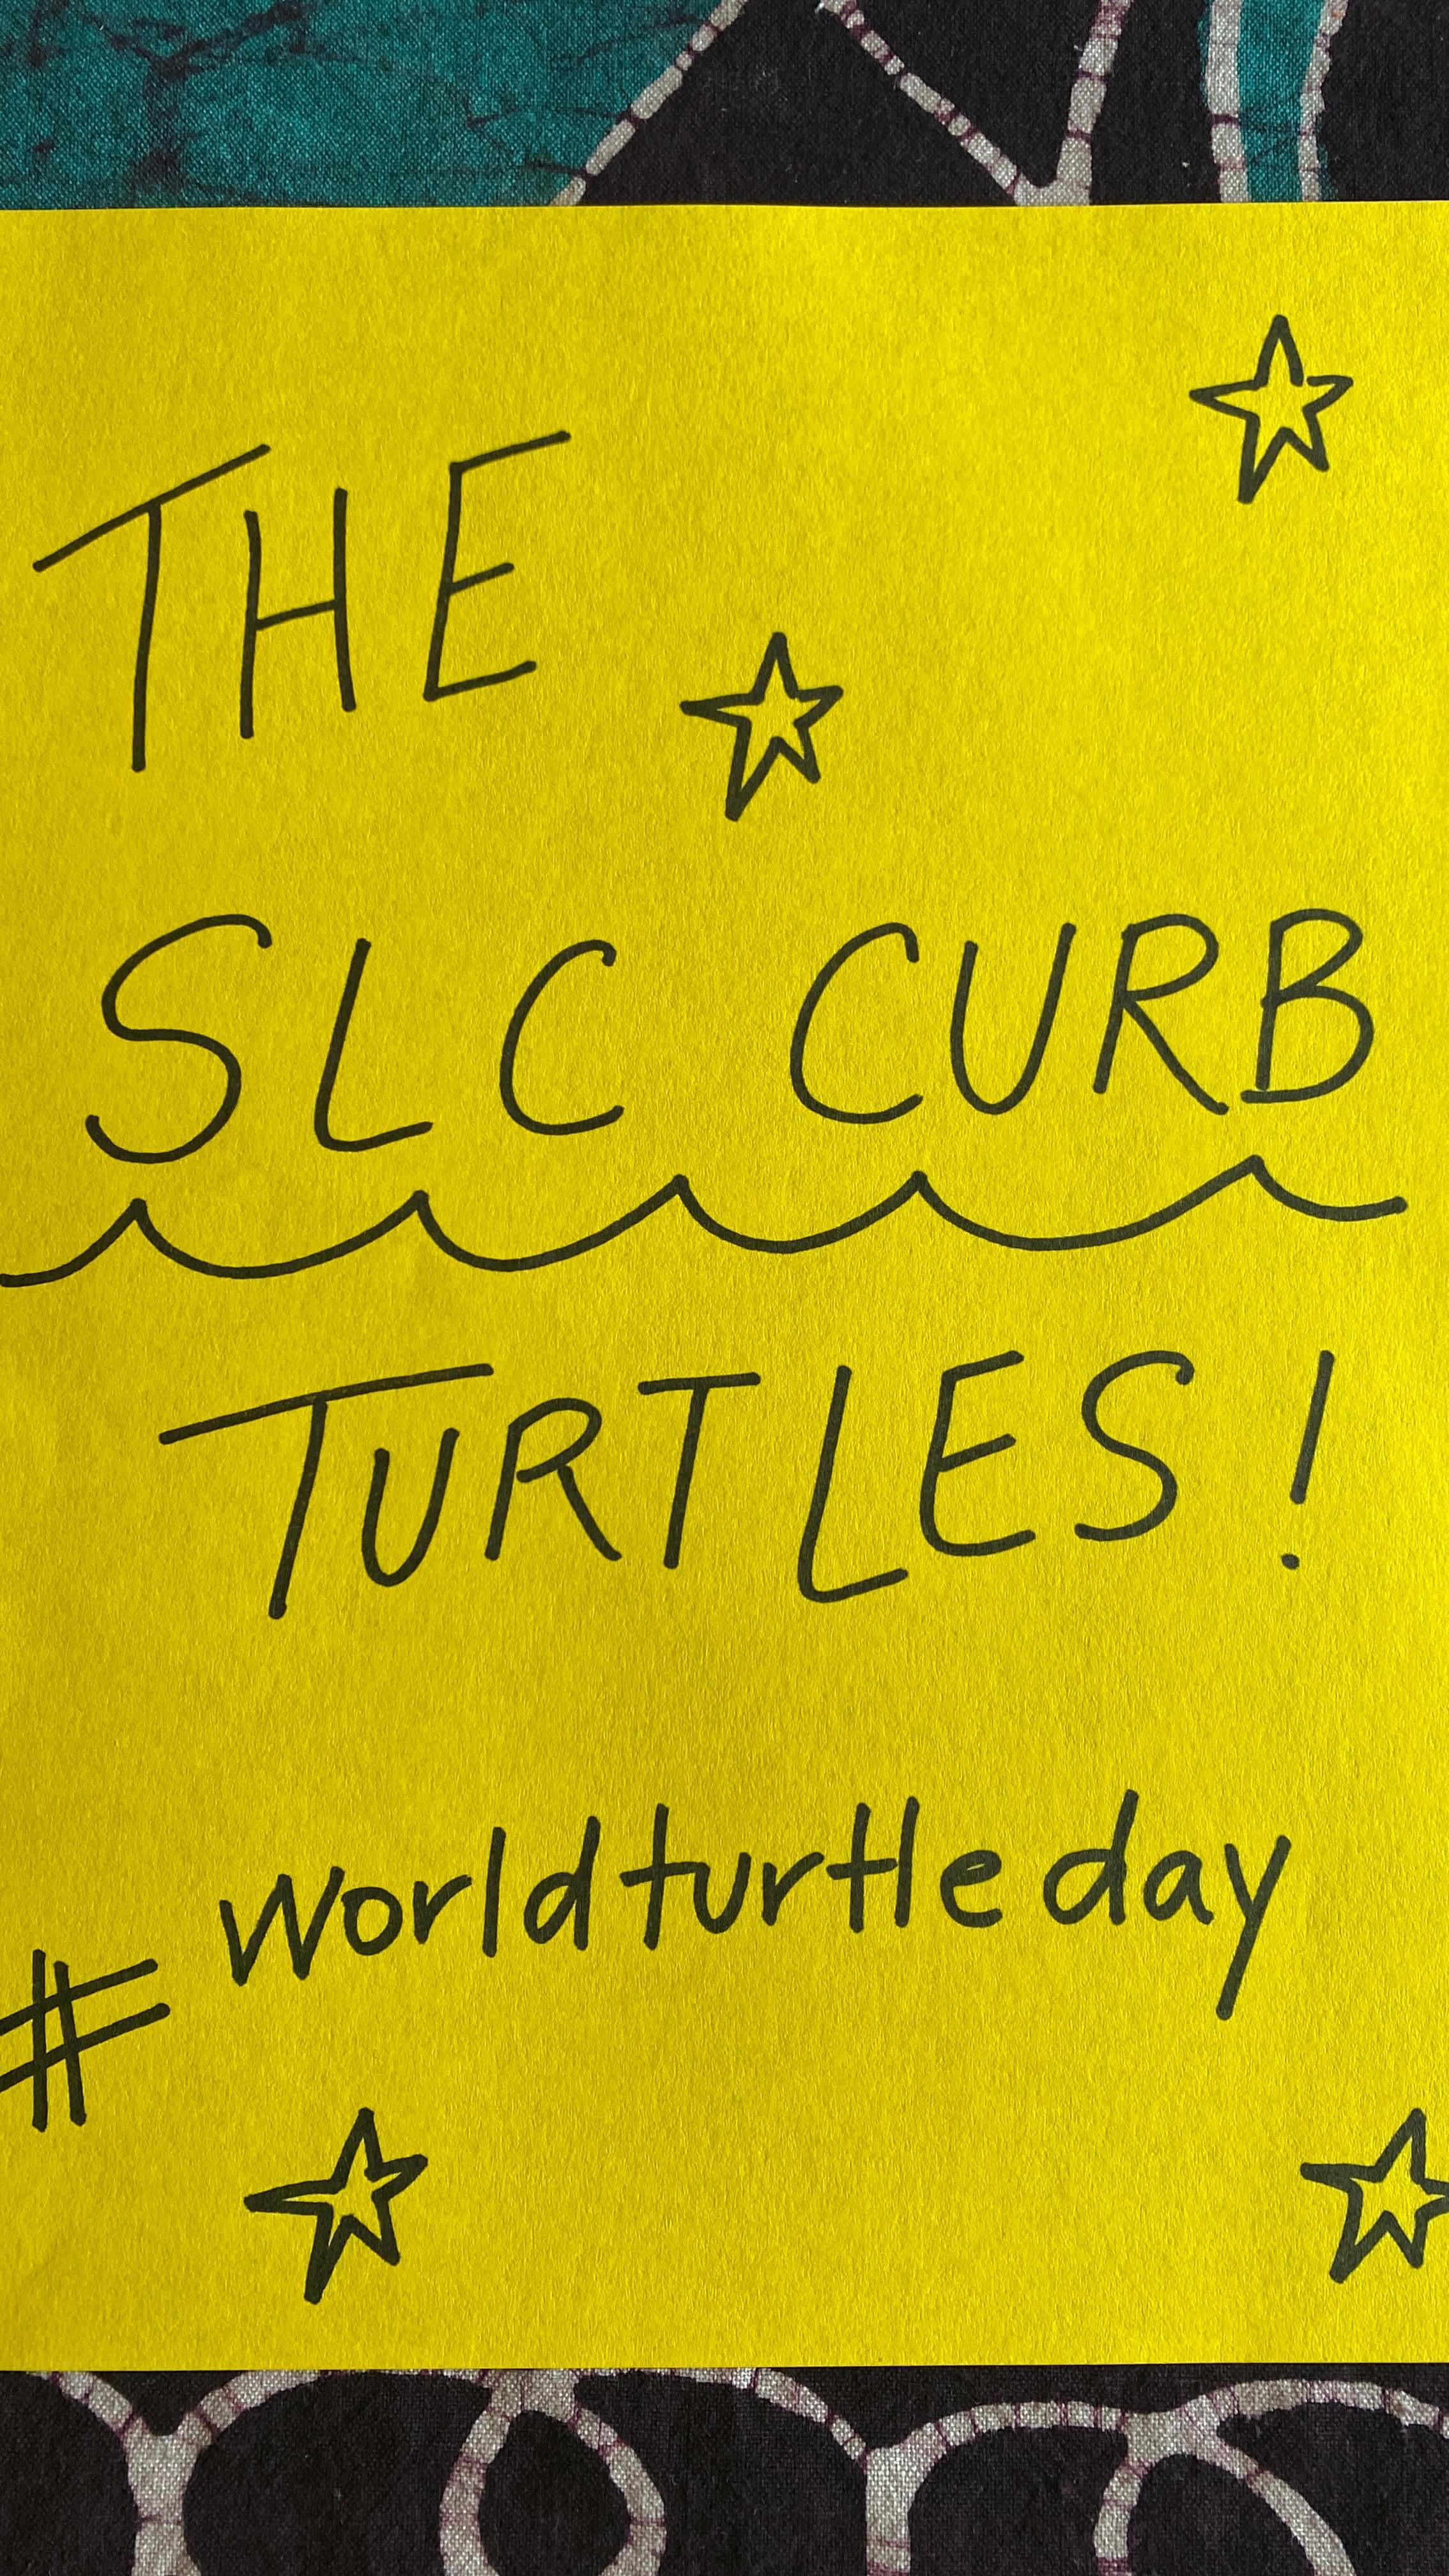 THE
SLC CURB
TURTLES!
#worldturtleday